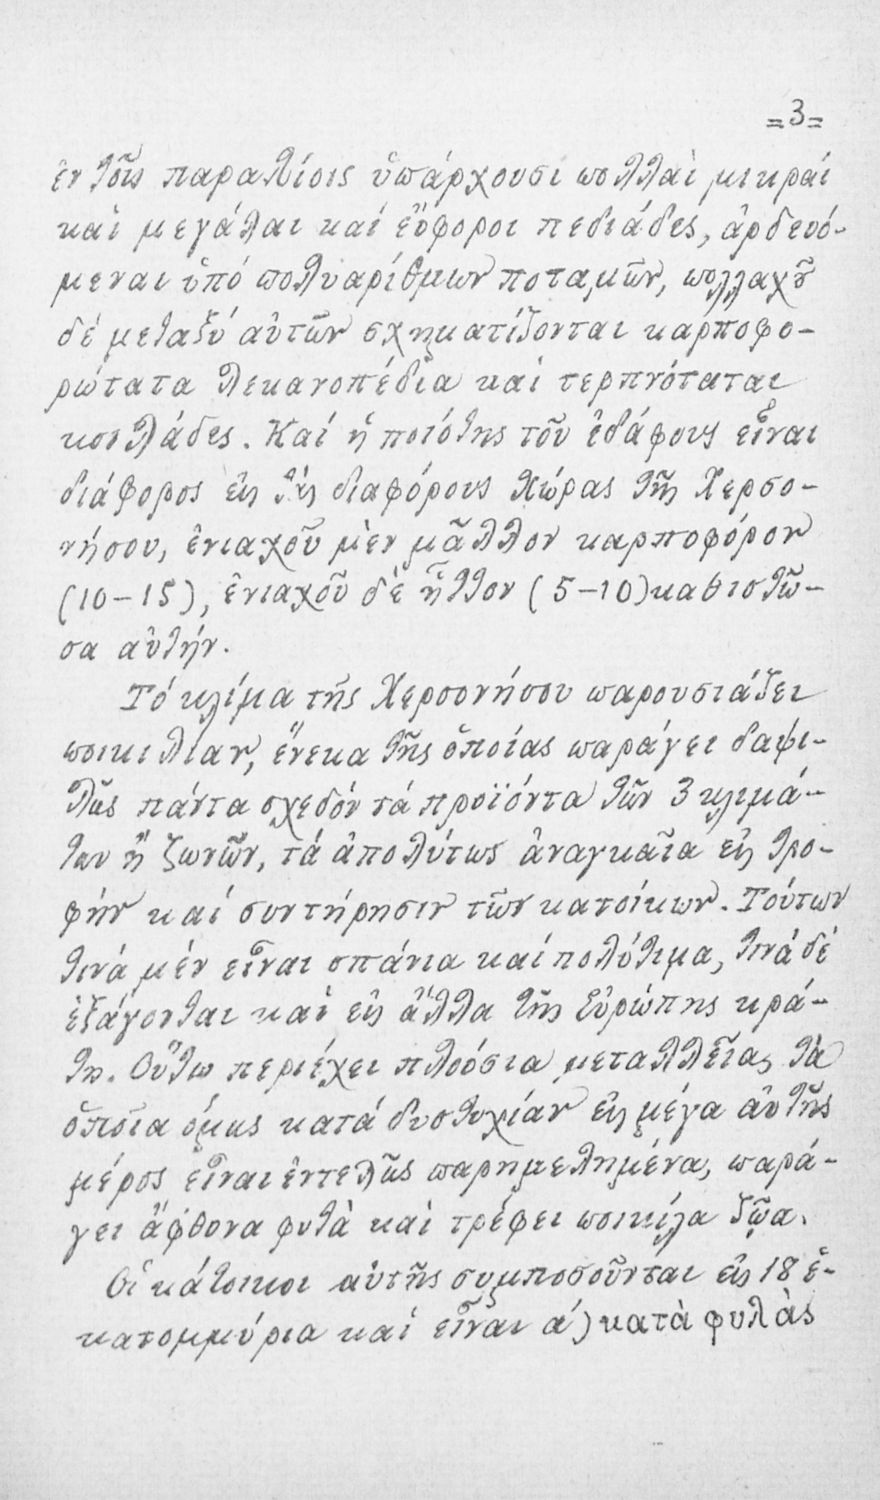 =3=
ἐν τοῖς παραλίοις ὑπάρχουσι πολλαὶ μικραί
καὶ μεγάλαι καί εὔφοροι πεδιάδες, ἀρδευό-
μεναι ὑπό πολυαρίθμων ποταμῶν, πολλαχοῦ
δέ μεταξύ αὐτῶν σχηματίζονται καρποφο-
ρώτατα λεκανοπέδια καὶ τερπνόταται
κοιλάδες. Καί ἡ ποιότης τοῦ ἐδάφους εἶναι
διάφορος εἰς τάς διαφόρους χώρας τῆς Χερσο-
νήσου, ἐνιαχοῦ μὲν μᾶλλον καρποφόρον
(10-15), ἐνιαχοῦ δὲ ἧττον (5-10) καθιστῶ-
σα αὐτήν.
Τό κλίμα τῆς Χερσονήσου παρουσιάζει
ποικιλίαν, ἕνεκα τῆς ὁποίας παράγει δαψι-
λῶς πάντα σχεδόν τά προϊόντα τῶν 3 κλιμά-
των ἤ ζωνῶν, τά ἀπολύτως ἀναγκαῖα εἰς τρο-
φήν καί συντήρησιν τῶν κατοίκων. Τούτων
τινά μέν εἶναι σπάνια καί πολύτιμα, τινά δέ
ἐξάγονται καὶ εἰς ἄλλα τῆς Εὐρώπης κρά-
τη. Οὕτω περιέχει πλούσια μεταλλεῖα, τὰ
ὁποῖα ὅμως κατά δυστυχίαν εἰς μέγα αὐτῆς
μέρος εἶναι ἐντελῶς παρημελημένα, παρά-
γει ἄφθονα φυτὰ καὶ τρέφει ποικίλα ζῶα.
Οἱ κάτοικοι αὐτῆς συμποσοῦνται εἰς 18 ἑ-
κατομμύρια καὶ εἶναι α') κατὰ φυλὰς